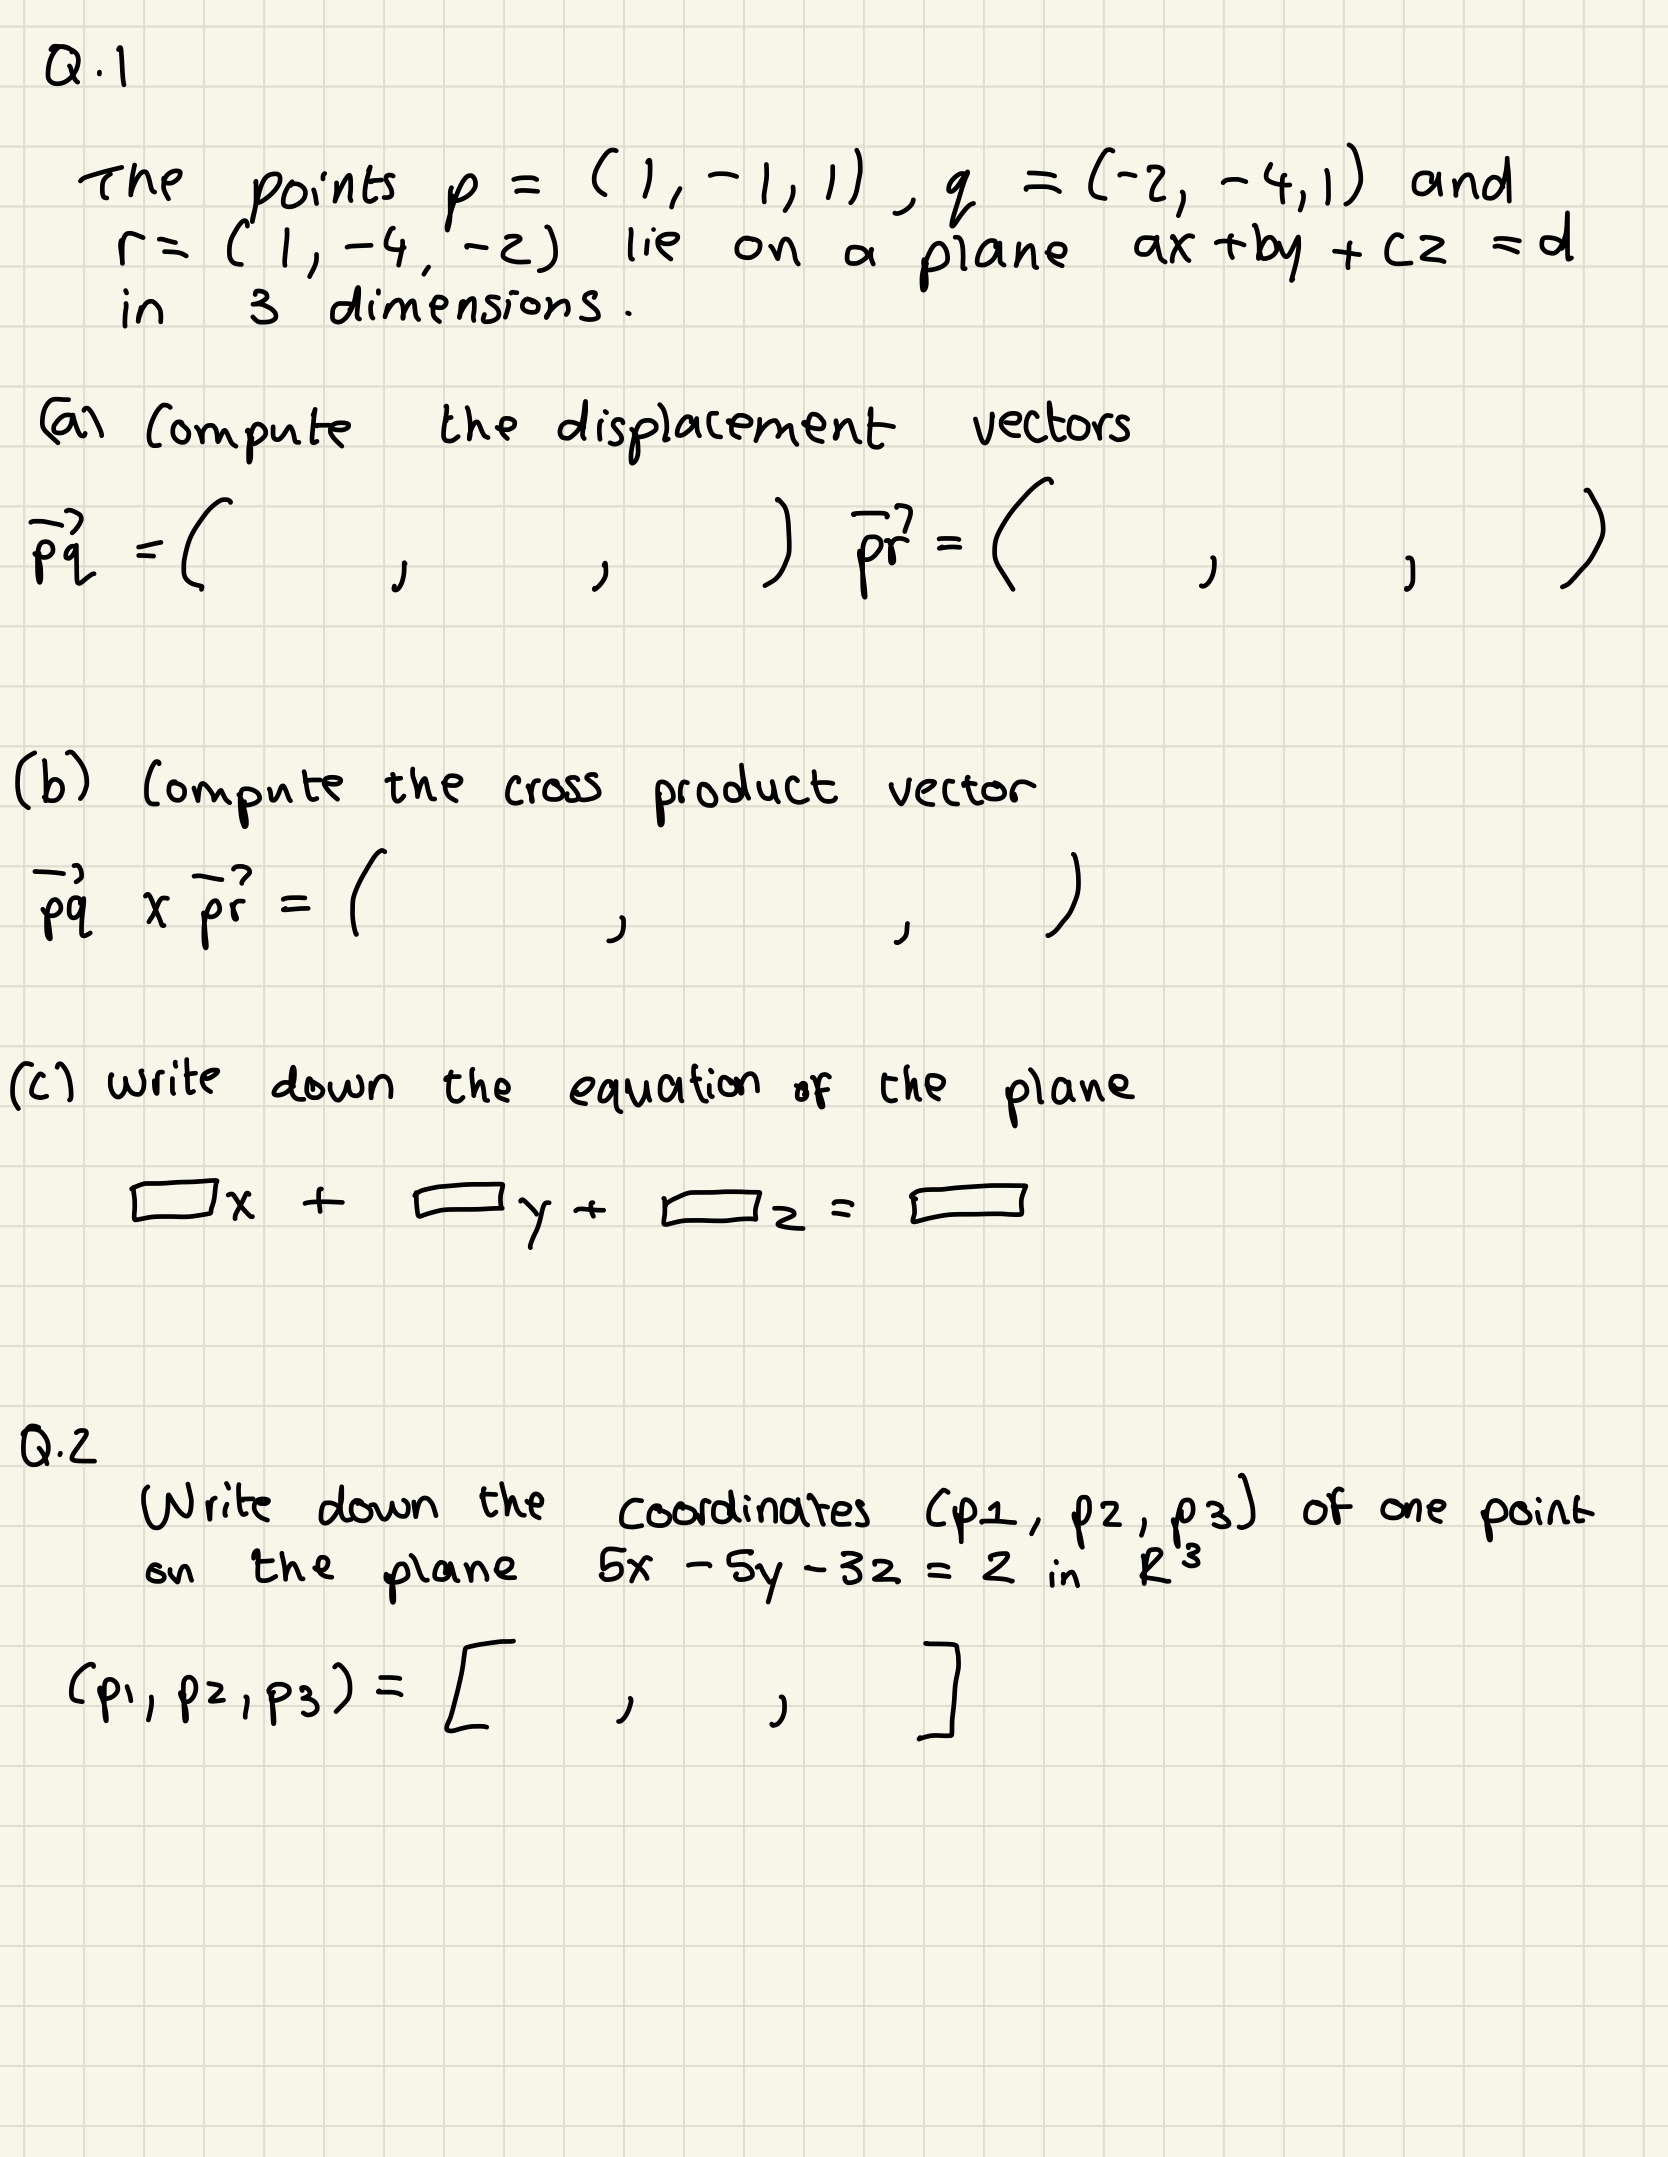 Q.1
The points p = (1, -1, 1), q = (-2, -4, 1) and
r = (1, -4, -2) lie on a plane ax + by + cz = d
in 3 dimensions.
(a) Compute the displacement vectors
→pq = ( , , ) →pr = ( , , )
(b) Compute the cross product vector
→pq x →pr = ( , , )
(c) write down the equation of the plane
▭x + ▭y + ▭z = ▭
Q.2
Write down the coordinates (p1, p2, p3) of one point
on the plane 5x - 5y - 3z = 2 in R³
(p1, p2, p3) = [ , , ]